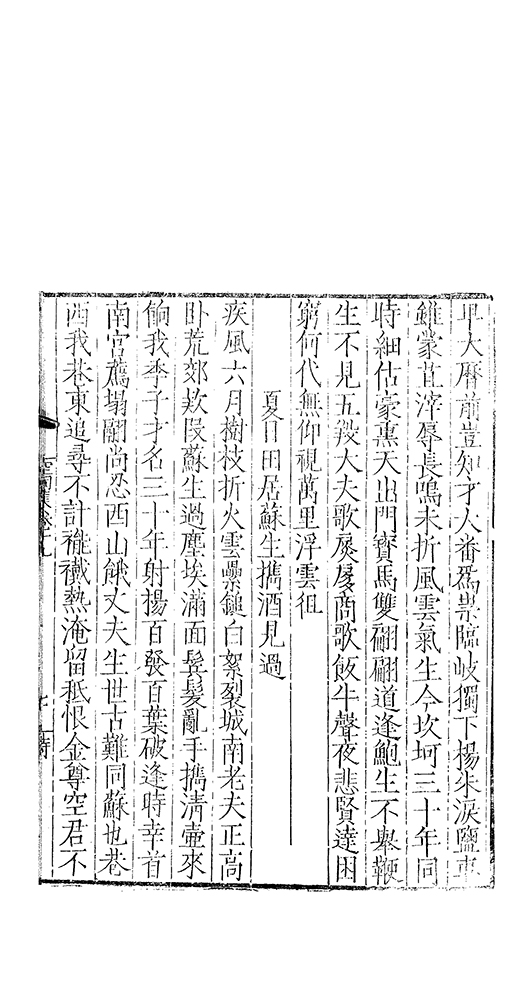 平大曆前豈知才人番爲祟臨岐獨下楊朱淚鹽車
雖蒙苴滓辱長鳴未折風雲氣生今坎坷三十年同
時細估豪熏天出門寳馬雙翩翩道逢鮑生不舉鞭
生不見五羖大夫歌扊扅商歌飯牛聲夜悲賢達困
窮何代無仰視萬里浮雲徂
夏日田居蘇生攜酒見過
疾風六月樹枝折火雲纍鎚白絮裂城南老夫正高
卧荒郊欵段蘇生過塵埃滿面鬂髮亂手攜清壷來
餉我季子才名三十年射揚百發百葉破逢時幸首
南宮薦塌翮尚忍西山餓丈夫生世古難同蘇也巷
西我巷東追尋不計褦襶熱淹留秪恨金尊空君不
空同集卷十九
七